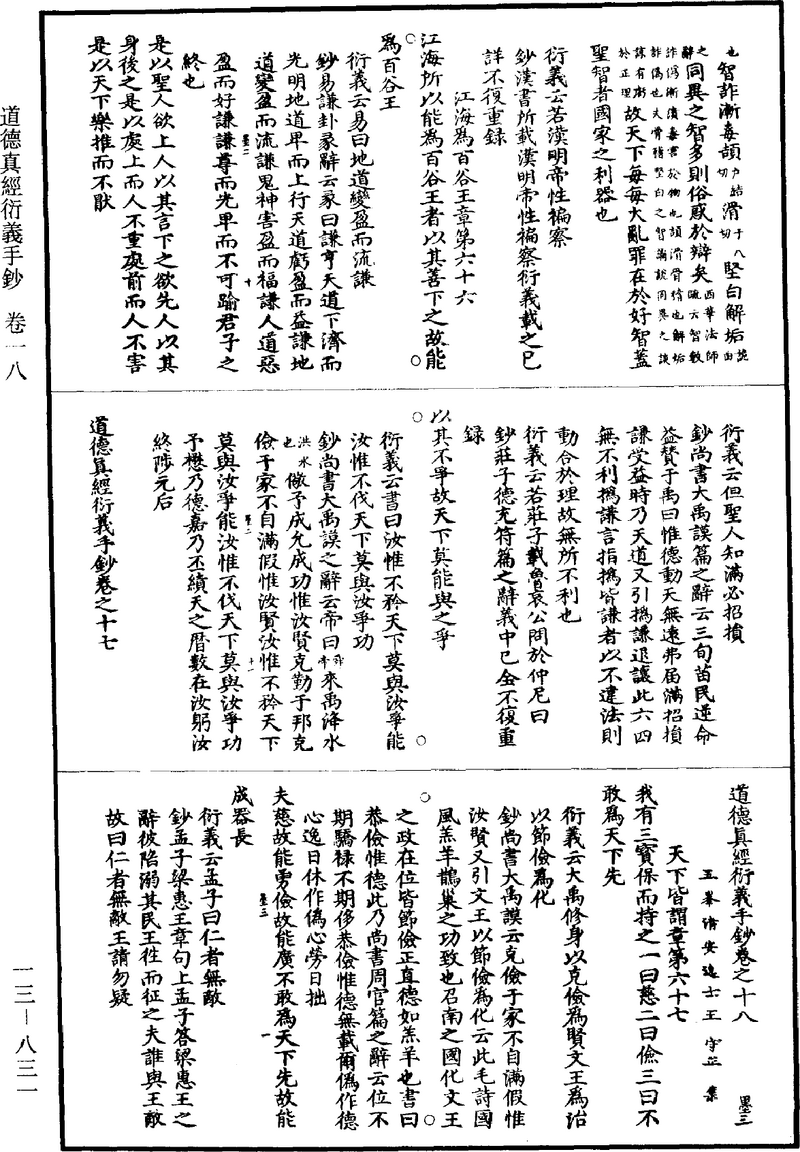 道德真經衍義手鈔　卷一八
一三—八三一
也智詐漸毒頡戶結切滑于八切堅白解垢詭曲
之辭同異之智多則俗惑於辯矣西華法師疏云智數
詐偽漸漬毒害於物也頡滑滑稽也解垢
詐偽也夫滑稽堅白之智譎詭同異之談
諒有虧於正理故天下每每大亂罪在於好智蓋
聖智者國家之利器也
衍義云若漢明帝性褊察
鈔漢書所載漢明帝性褊察衍義載之已
詳不復重録
江海為百谷王章第六十六
江海所以能為百谷王者以其善下之故能
為百谷王
衍義云易曰地道變盈而流謙
鈔易謙卦彖辭云彖曰謙亨天道下濟而
光明地道卑而上行天道虧盈而益謙地
道變盈而流謙鬼神害盈而福謙人道惡
盈而好謙謙尊而光卑而不可踰君子之
終也
是以聖人欲上人以其言下之欲先人以其
身後之是以處上而人不重處前而人不害
是以天下樂推而不猒
衍義云但聖人知滿必招損
鈔尚書大禹謨篇之辭云三旬苗民逆命
益贊于禹曰惟德動天無遠弗屆滿招損
謙受益時乃天道又引撝謙退讓此六四
無不利撝謙言指撝皆謙者以不違法則
動合於理故無所不利也
衍義云若莊子載魯哀公問於仲尼曰
鈔莊子德充符篇之辭義中已全不復重
録
以其不爭故天下莫能與之爭
衍義云書曰汝惟不矜天下莫與汝爭能
汝惟不伐天下莫與汝爭功
鈔尚書大禹謨之辭云帝曰來禹洚水
洪水也儆予成允成功惟汝賢克勤于邦克
儉于家不自滿假惟汝賢汝惟不矜天下
莫與汝爭能汝惟不伐天下莫與汝爭功
予懋乃德嘉乃丕績天之曆數在汝躬汝
終陟元后
道德真經衍義手鈔卷之十七
道德真經衍義手鈔卷之十八　墨三
玉峯清安逸士王守正集
天下皆謂章第六十七
我有三寶保而持之一曰慈二曰儉三曰不
敢為天下先
衍義云大禹修身以克儉為賢文王為治
以節儉為化
鈔尚書大禹謨云克儉于家不自滿假惟
汝賢又引文王以節儉為化云此毛詩國
風羔羊鵲巢之功致也召南之國化文王
之政在位皆節儉正直德如羔羊也書曰
恭儉惟德此乃尚書周官篇之辭云位不
期驕祿不期侈恭儉惟德無載爾偽作德
心逸日休作偽心勞日拙
夫慈故能勇儉故能廣不敢為天下先故能
成器長
衍義云孟子曰仁者無敵
鈔孟子梁惠王章句上孟子答梁惠王之
辭彼陷溺其民王往而征之夫誰與王敵
故曰仁者無敵王請勿疑